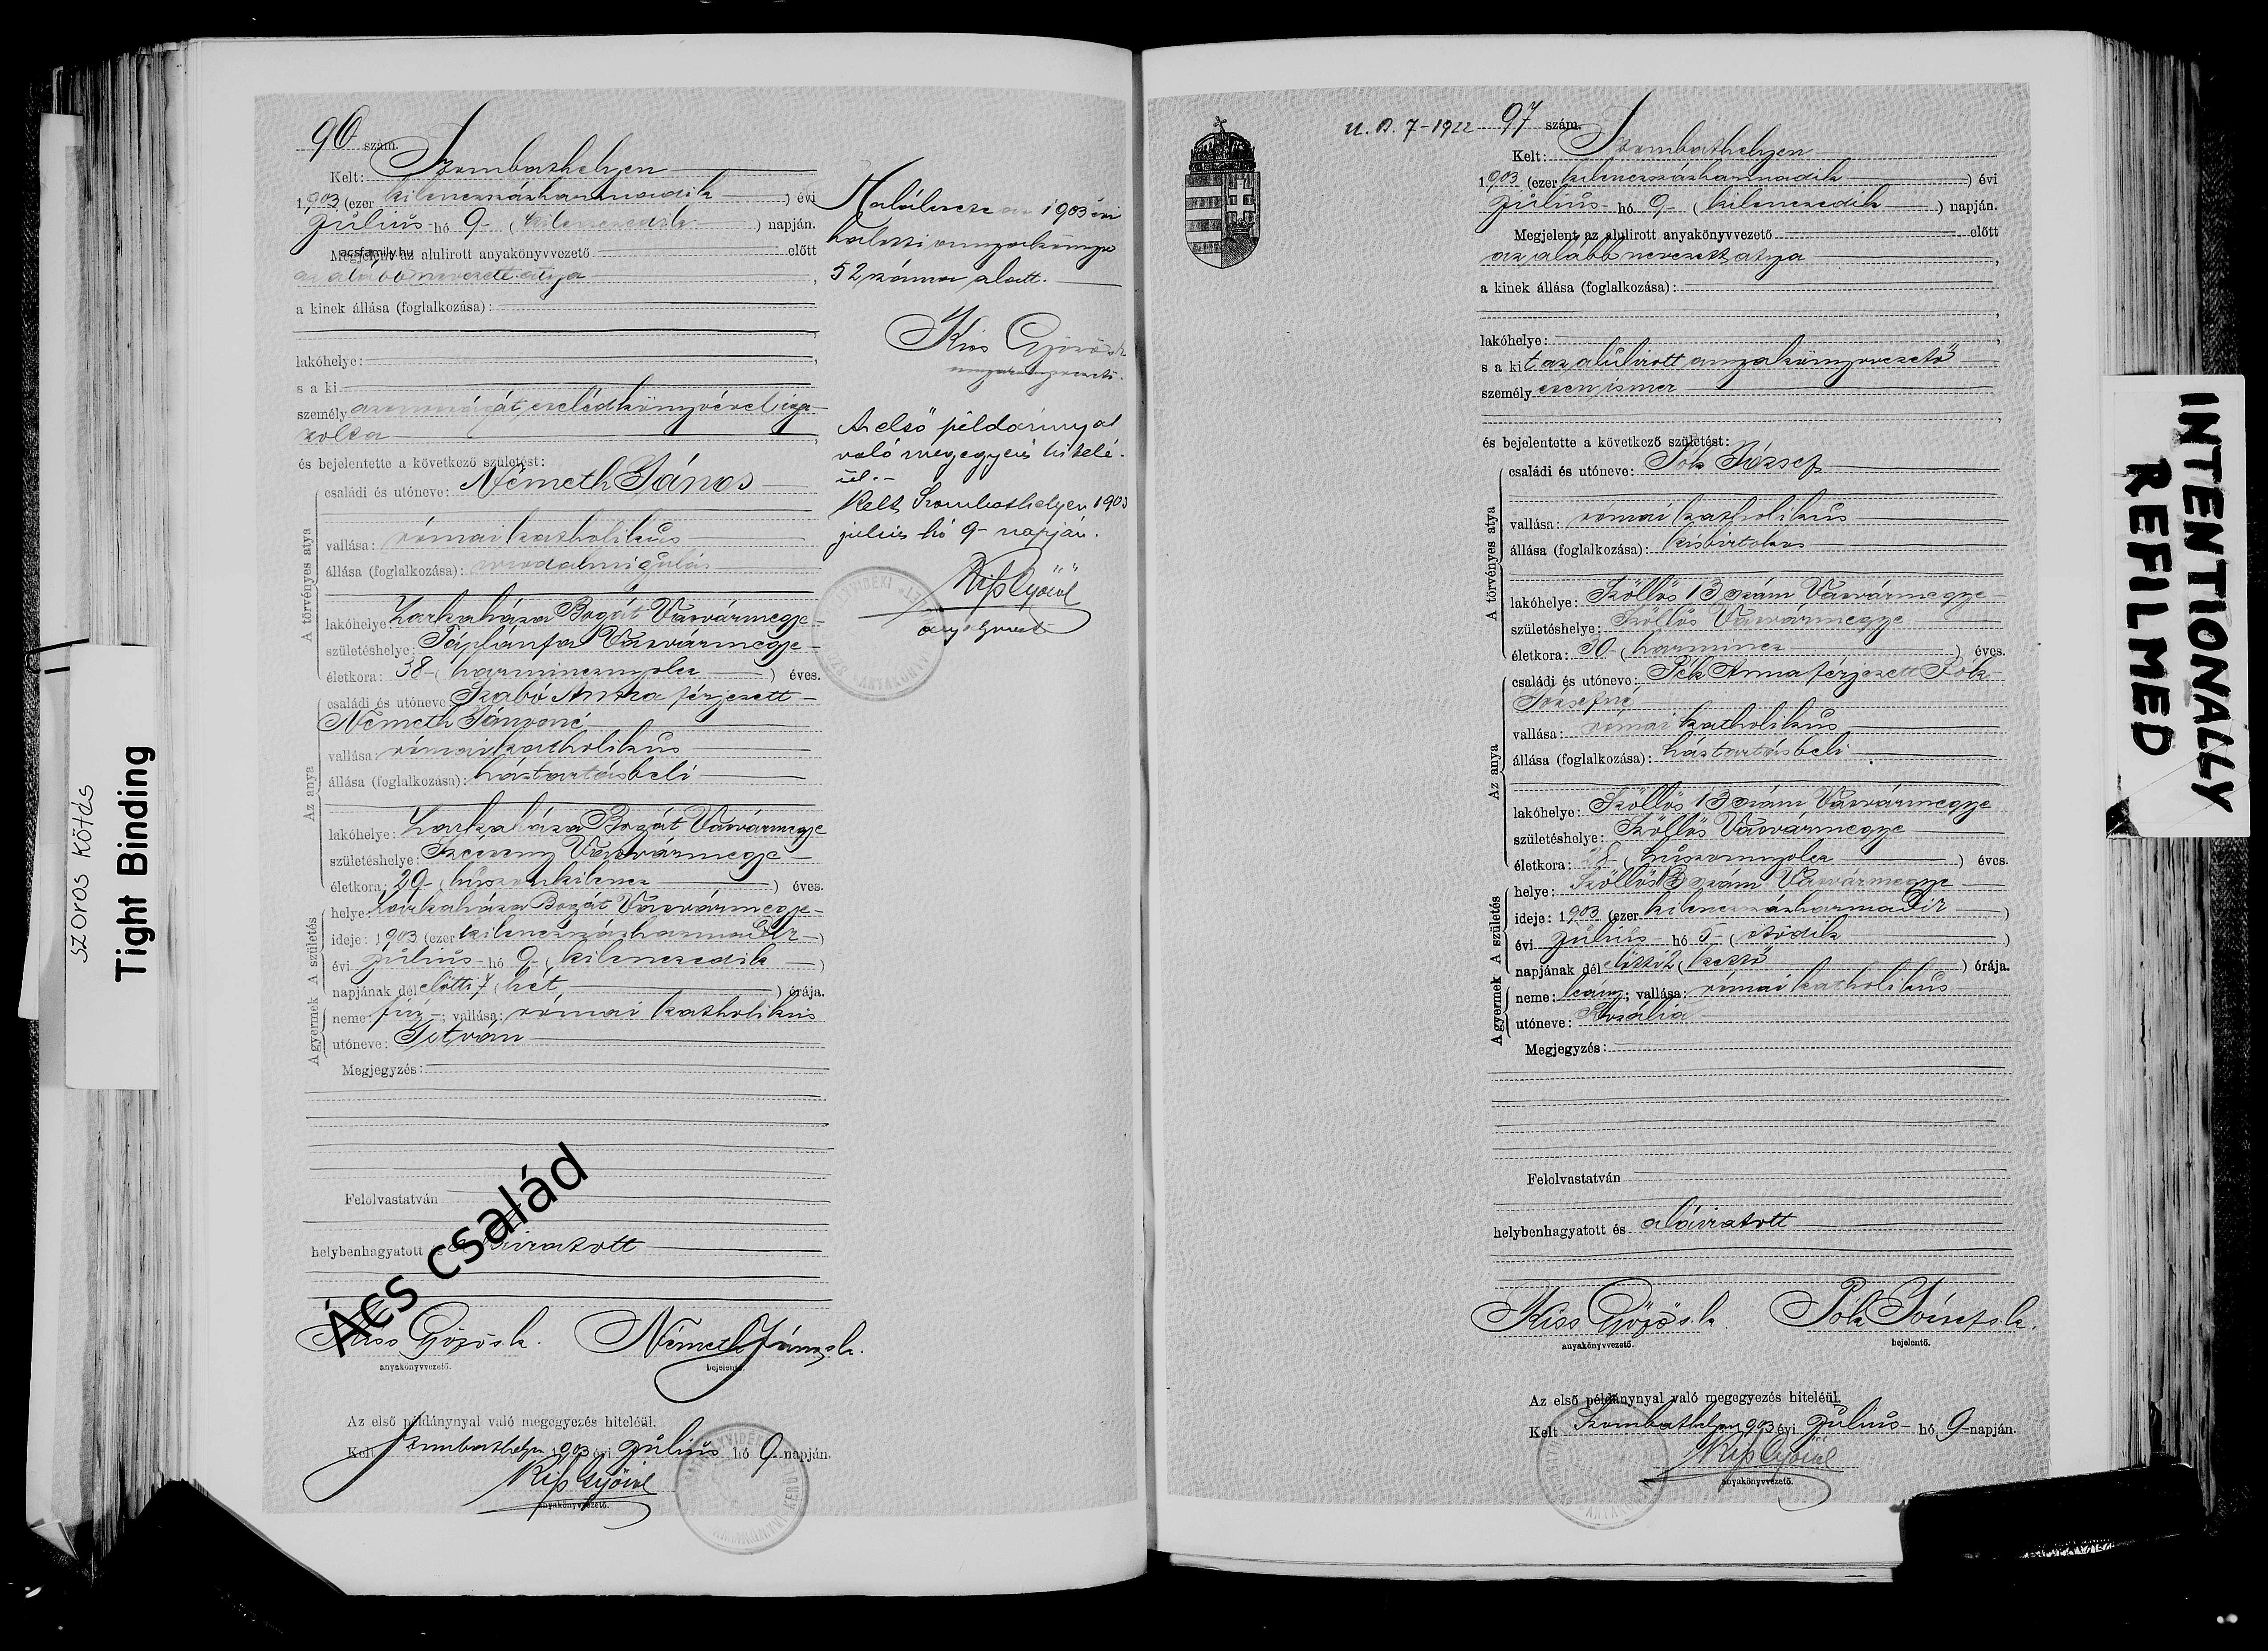 szoros kötás
Tight Binding
96 szám.
Kelt: Szombathelyen
1903 (ezer kilenczszázharmadik) évi
július hó 9 (kilenczedik) napján.
Megjelent az alulirott anyakönyvvezető előtt
acsfamily.hu
az alább nevezett atya,
a kinek állása (foglalkozása):
lakóhelye:
s a ki
személyazonosságát cselédkönyvével iga-
zolta
és bejelentette a következő születést:
A törvényes atya
családi és utóneve: Németh János
vallása: római katholikus
állása (foglalkozása): uradalmi gulás
lakóhelye: Zarkaháza Bogát Vasvármegye
születéshelye: Táplánfa Vasvármegye
életkora: 38 (harmincznyolcz) éves.
Az anya
családi és utóneve Szabó Anna férjezett
Németh Jánosné
vallása: római katholikus
állása (foglalkozása): háztartásbeli
lakóhelye: Zarkaháza Bogát Vasvármegye
születéshelye: Vasvármegye
életkora: 29 (huszonkilencz) éves.
A gyermek A születés
helye: Zarkaháza Bogát Vasvármegye
ideje: 1903 (ezer kilenczszázharmadik)
évi július hó 9 (kilenczedik)
napjának délelőtti 7 (hét) órája.
neme: fiú; vallása: római katholikus
utóneve: István
Megjegyzés:
Felolvastatván
helybenhagyatott és aláiratott
Ács család
Kiss Győző s. k. Németh János s. k.
anyakönyvvezető. bejelentő.
Az első példánynyal való megegyezés hiteléül.
Kelt Szombathelyen 1903 évi július hó 9 napján.
Kiss Győző
anyakönyvvezető.
Halálesete az 1903 évi
halotti anyakönyv
52 száma alatt.
Kiss Győző s. k.
anyakönyvvezető.
Az első példánynyal
való megegyezés hitelé-
ül.-
Kelt Szombathelyen 1903
július hó 9 napján.
Kiss Győző
U. B. 7-1922
97 szám.
Kelt: Szombathelyen
1903 (ezer kilenczszázharmadik) évi
július hó 9 (kilenczedik) napján.
Megjelent az alulirott anyakönyvvezető előtt
az alább nevezett atya,
a kinek állása (foglalkozása):
lakóhelye:
s a kit az alulirott anyakönyvvezető
személyesen ismer
és bejelentette a következő születést:
A törvényes atya
családi és utóneve: Pók József
vallása: római katholikus
állása (foglalkozása): kisbirtokos
lakóhelye: Szőllős 13 szám Vasvármegye
születéshelye: Szőllős Vasvármegye
életkora: 30 (harmincz) éves.
Az anya
családi és utóneve: Pék Anna férjezett Pók
Józsefné
vallása: római katholikus
állása (foglalkozása): háztartásbeli
lakóhelye: Szőllős 13 szám Vasvármegye
születéshelye: Szőllős Vasvármegye
életkora: 28 (huszonnyolcz) éves.
A gyermek A születés
helye: Szőllős 13 szám Vasvármegye
ideje: 1903 (ezer kilenczszázharmadik)
évi július hó 5 (ötödik)
napjának délelőtti 2 (kettő) órája.
neme: leány; vallása: római katholikus
utóneve: Rozália
Megjegyzés:
Felolvastatván
helybenhagyatott és aláiratott
Kiss Győző s. k. Pók József s. k.
anyakönyvvezető. bejelentő.
Az első példánynyal való megegyezés hiteléül.
Kelt Szombathelyen 1903 évi július hó 9 napján.
Kiss Győző
anyakönyvvezető.
INTENTIONALLY
REFILMED